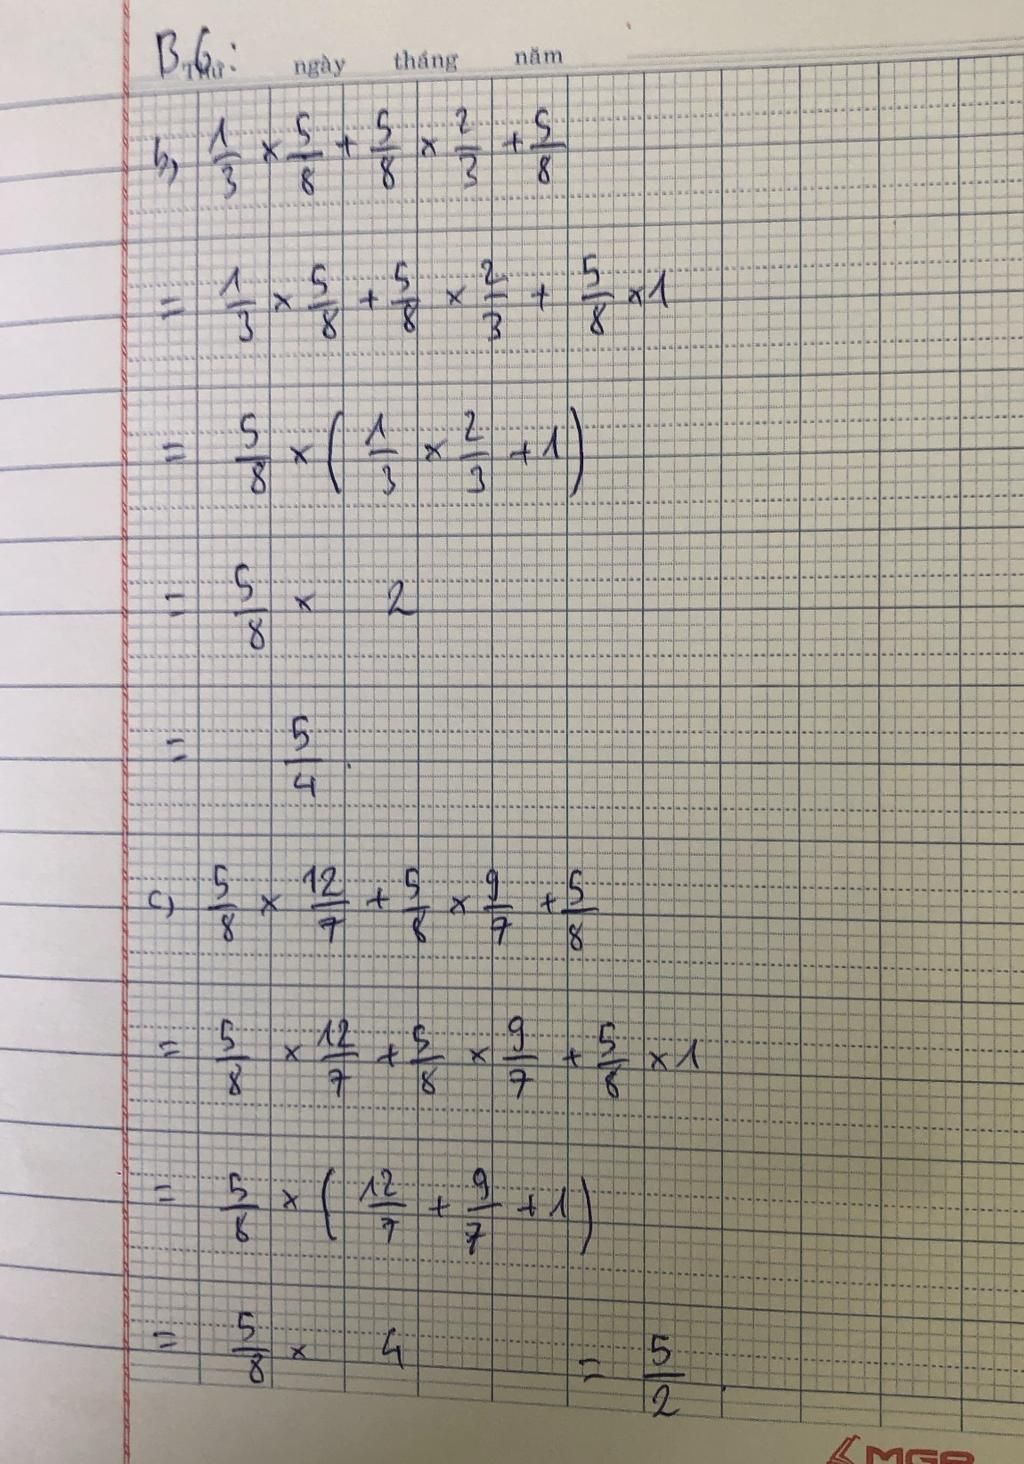 B6:
Thứ ngày tháng năm
b, 1/3 × 5/8 + 5/8 × 2/3 + 5/8
= 1/3 × 5/8 + 5/8 × 2/3 + 5/8 × 1
= 5/8 × ( 1/3 × 2/3 + 1 )
= 5/8 × 2
= 5/4 .
c, 5/8 × 12/7 + 5/8 × 9/7 + 5/8
= 5/8 × 12/7 + 5/8 × 9/7 + 5/8 × 1
= 5/8 × ( 12/7 + 9/7 + 1 )
= 5/8 × 4 = 5/2 .